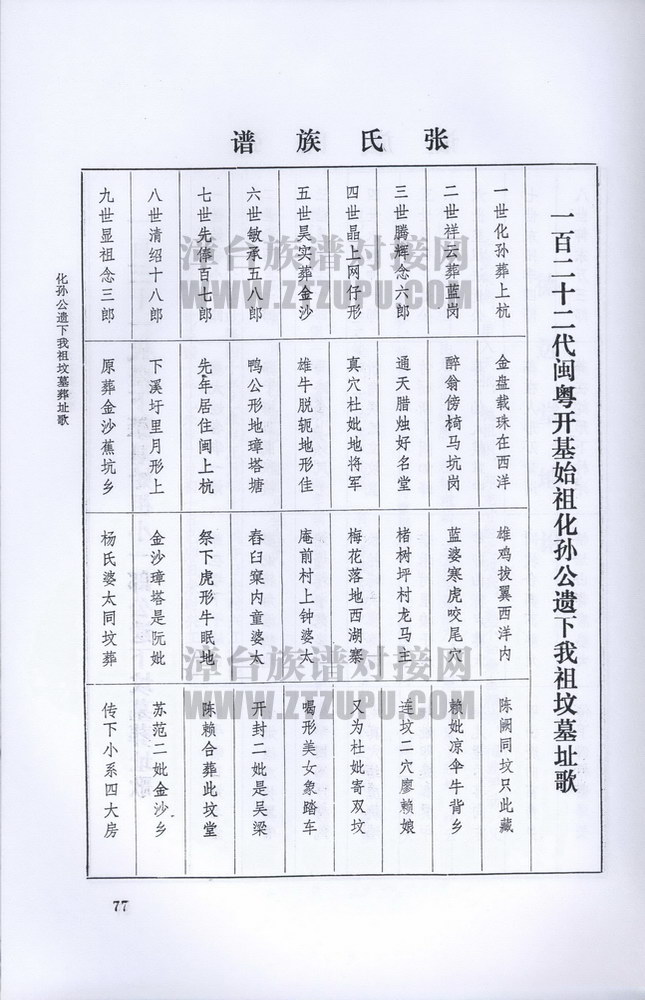 张氏族谱
一百二十二代闽粤开基始祖化孙公遗下我祖坟墓址歌
一世化孙葬上杭
金盘载珠在西洋
雄鸡拔翼西洋内
陈阙同坟只此藏
二世祥云葬蓝岗
醉翁傍椅马坑岗
蓝婆寒虎咬尾穴
赖妣凉伞牛背乡
三世腾辉念六郎
通天腊烛好名堂
楮树坪村龙马主
连坟二穴廖赖娘
四世晶上网仔形
真穴杜妣地将军
梅花落地西湖寨
又为杜妣寄双坟
五世昊实葬金沙
雄牛脱轭地形佳
庵前村上钟婆太
喝形美女象踏车
六世敏承五八郎
鸭公形地璋塔塘
舂臼窠内童婆太
开封二妣是吴梁
七世先俸百七郎
先年居住闽上杭
祭下虎形牛眠地
陈赖合葬此坟堂
八世清绍十八郎
下溪圩里月形上
金沙璋塔是阮妣
苏范二妣金沙乡
九世显祖念三郎
原葬金沙蕉坑乡
杨氏婆太同坟葬
传下小系四大房
化孙公遗下我祖坟墓葬址歌
77
漳台族谱对接网
WWW.ZTZUPU.COM
漳台族谱对接网
WWW.ZTZUPU.COM